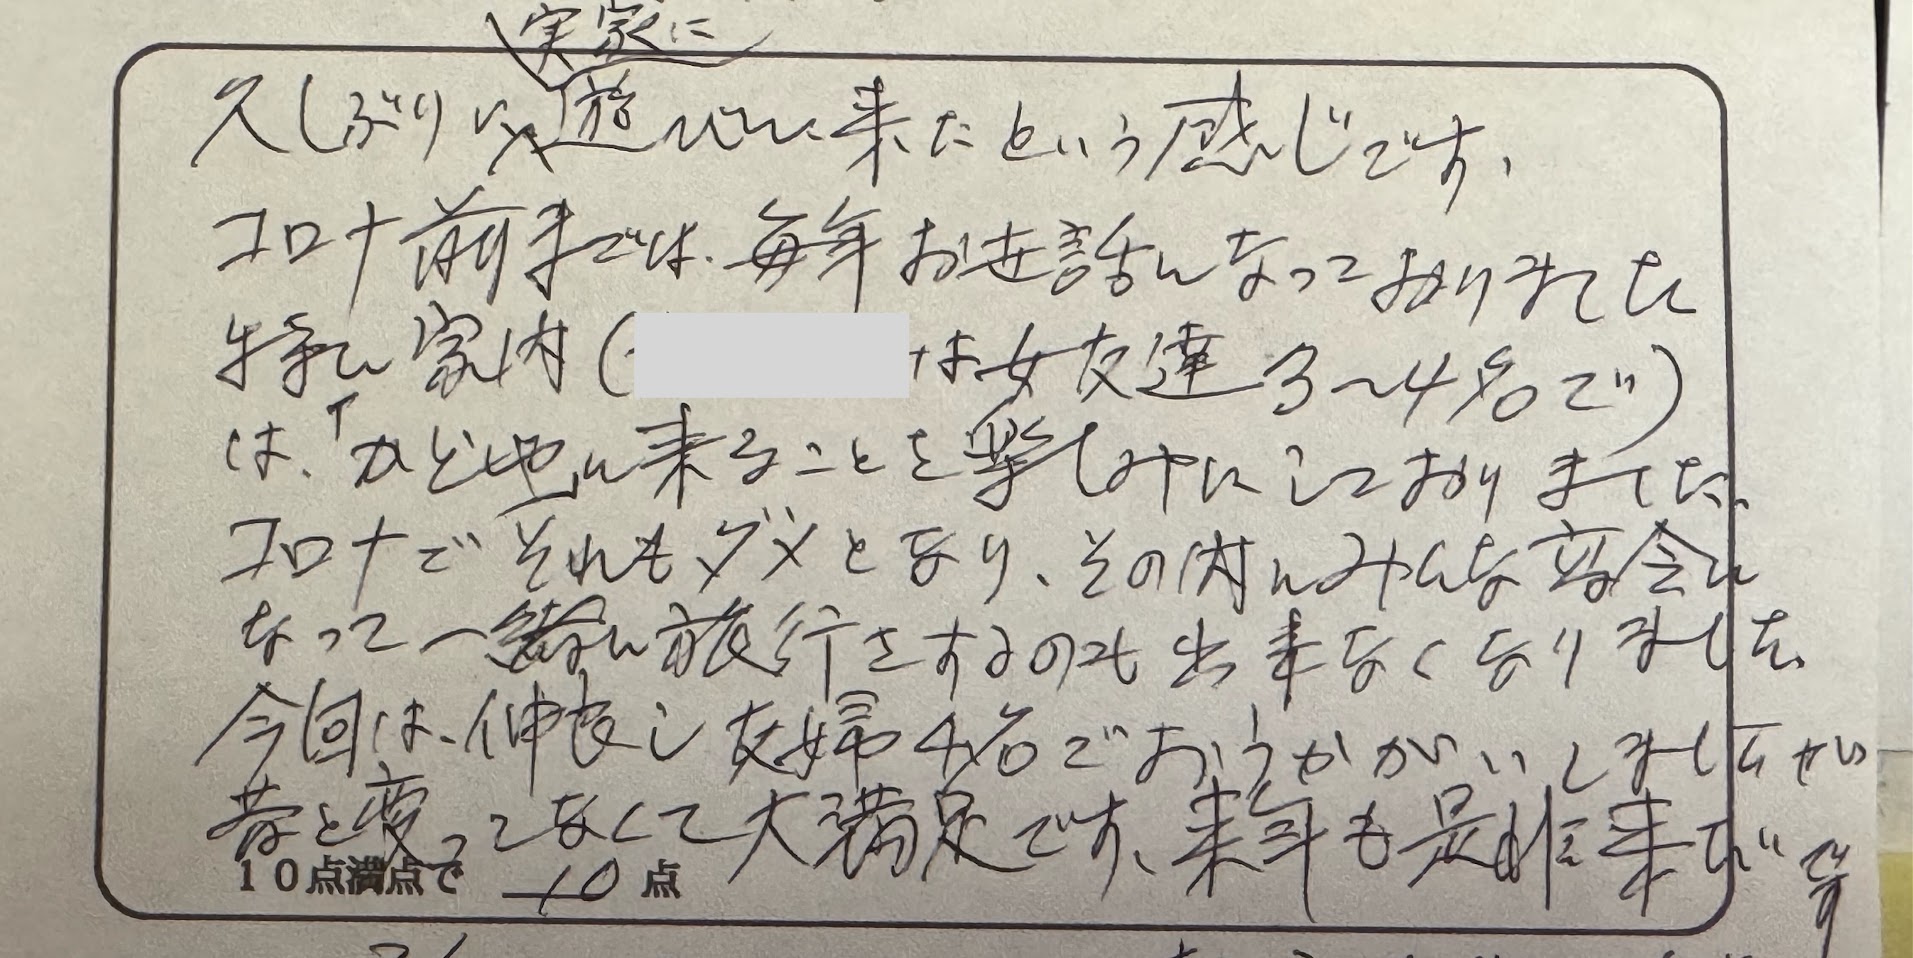 久しぶりに実家に遊びに来たという感じです、
コロナ前までは、毎年お世話になっておりました
特に家内(は女友達3〜4名で)
は、「かど」に来ることを楽しみにしておりました、
コロナでそれもダメとなり、その内にみんな高令に
なって一緒に旅行をするのも出来なくなりました、
今回は、仲良し夫婦4名でおうかがいしましたが
昔と変ってなくて大満足です、来年も是非来たいです
10点満点で 10 点